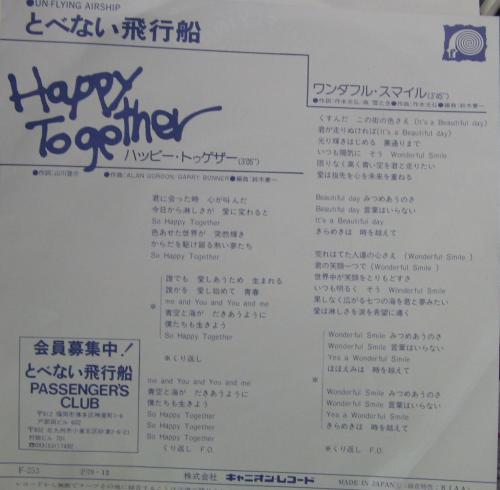 ●UN-FLYING AIRSHIP
とべない飛行船
Happy Together
ハッピー・トゥゲザー(3'05")
●作曲:ALAN GORDON, GARRY BONNER●編曲:鈴木慶一
君に会った時 心が叫んだ
今日から淋しさが 愛に変わると
So Happy Together
色あせた世界が 突然輝き
からだを駆け回る熱い夢たち
So Happy Together
※
誰でも 愛しあうため 生まれる
誰かを 愛し始めて 青春
me and You and You and me
青空と海が だきあうように
僕たちも生きよう
So Happy Together
※くり返し
me and You and You and me
青空と海が だきあうように
僕たちも生きよう
So Happy Together
So Happy Together
So Happy Together
So Happy Together
くり返し F.O.
ワンダフル・スマイル(3'45")
くすんだ この街の色さえ (It's a Beautiful day)
君が走りぬければ (It's a Beautiful day)
光り輝きはじめる 裏通りまで
いつも陽気に そう Wonderful Smile
限りなく高く青い空を君と走りたい
愛は指先を心を未来を重ねる
Beautiful day みつめあうのさ
Beautiful day 言葉はいらない
It's a Beautiful day
きらめきは 時を越えて
荒れはてた人達の心さえ (Wonderful Smile)
君の笑顔一つで (Wonderful Smile)
世界中が笑顔をとりもどすさ
いつも明るく そう Wonderful Smile
果しなく広がる七つの海を君と夢みたい
愛は淋しさを涙を希望に導く
※
Wonderful Smile みつめあうのさ
Wonderful Smile 言葉はいらない
Yes a Wonderful Smile
ほほえみは 時を越えて
Wonderful Smile みつめあうのさ
Wonderful Smile 言葉はいらない
Yes a Wonderful Smile
きらめきは 時を越えて
※くり返し F.O.
会員募集中!
とべない飛行船
PASSENGER'S
CLUB
村田ビル 701
F-253
P79-12
株式会社 キャニオン・レコード
MADE IN JAPAN